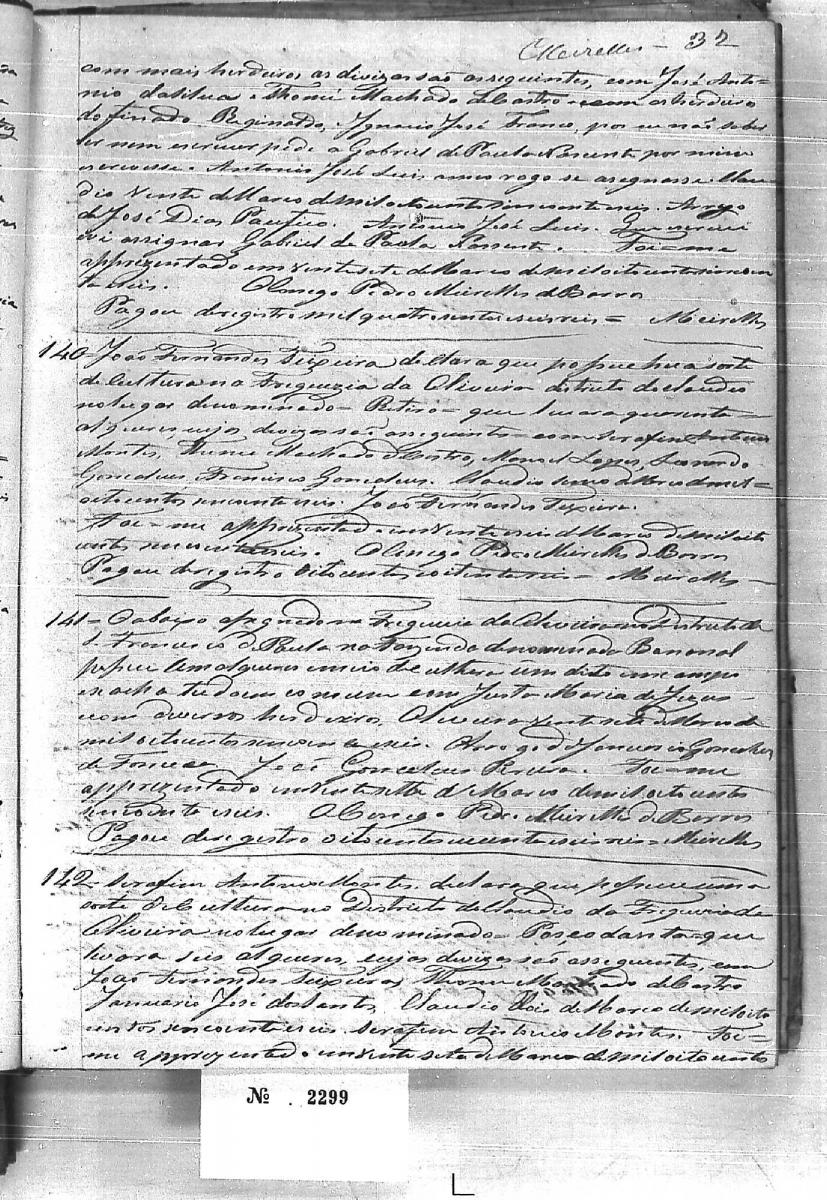 Meirelles - 32
com mais herdeiros as divizas são as seguintes, com José Anto-
nio da Silva Thomé Machado de Castro com os herdeiros
do finado Reginaldo, Ignacio José Franco, por eu não saber
ler nem escrever pedi a Gabriel de Paula Nascente por mim
escrevesse. Antonio José Luis a meu rogo se asignasse. Clau-
dio Vinte de Marco de mil oito centos sincoenta seis. Arrogo
de José Dias Pacifico. Antonio José Luis. Que escrevi
e vi assignar Gabriel de Paola Nassente. Foi-me
apprezentado em vinte sete de Marco de mil oito centos sincoen
ta seis. O Conego Pedro Meirelles de Barros
Pagou de registro mil quatro centos seis reis = Meirelles
140 - João Fernandes Teixeira declara que possue hua sorte
de Cultura na Freguezia da Oliveira districto de Claudio
no lugar denominado - Retiro - que levara quarenta
alqueres, cujas divizas são as seguintes - com Serafim Antonio
Montes, Thome Machado de Castro, Manoel Lopes, Leonardo
Goncalves, Francisco Goncalves. Claudio de Marco de mil
oito centos sincoenta seis. João Fernandes Teixera.
Foi-me apprezentado em vinte seis de Marco de mil oito
centos sincoenta seis. O Conego Pedro Meirelles de Barros
Pagou de registro oito centos oitenta reis = Meirelles -
141 - O abaixo asignado na Freguezia da Oliveira no Districto de
S. Francisco de Paula na Fazenda denominada Bananal
possue tem alqueres e meio de cultura e um dito em campo
e acha tudo em comum com Justa Maria de Jezus -
e com diversos herdeiros, Oliveira vinte sete de Marco de
mil oito centos sincoenta seis. Arrogo de Goncalves
de Fonceca José Goncalves Pereira. Foi-me
apprezentado em vinte sette de Marco de mil oito centos
sincoenta e seis. O Conego Pedro Meirelles de Barros
Pagou de registro oito centos e reis = Meirelles
142 - Serafim Antonio Montes, declara que possue uma
sorte de Cultura no Districto de Claudio da Freguezia de
Oliveira no lugar denominado - - que
levara seis alqueres, cujas divizas são as seguintes, com
João Fernandes Teixeira, Thome Machado de Castro
Januario José dos Santos, Claudio dois de Marco de mil oito
centos sincoenta e seis. Serafim Antonio Montes. Foi-
me apprezentado em vinte sete de Marco de mil oito centos
Nº 2299